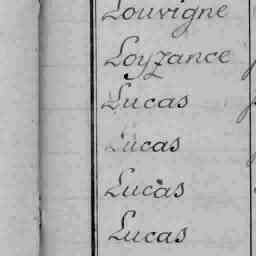 Louvigne
Loyzance
Lucas
Lucas
Lucas
Lucas